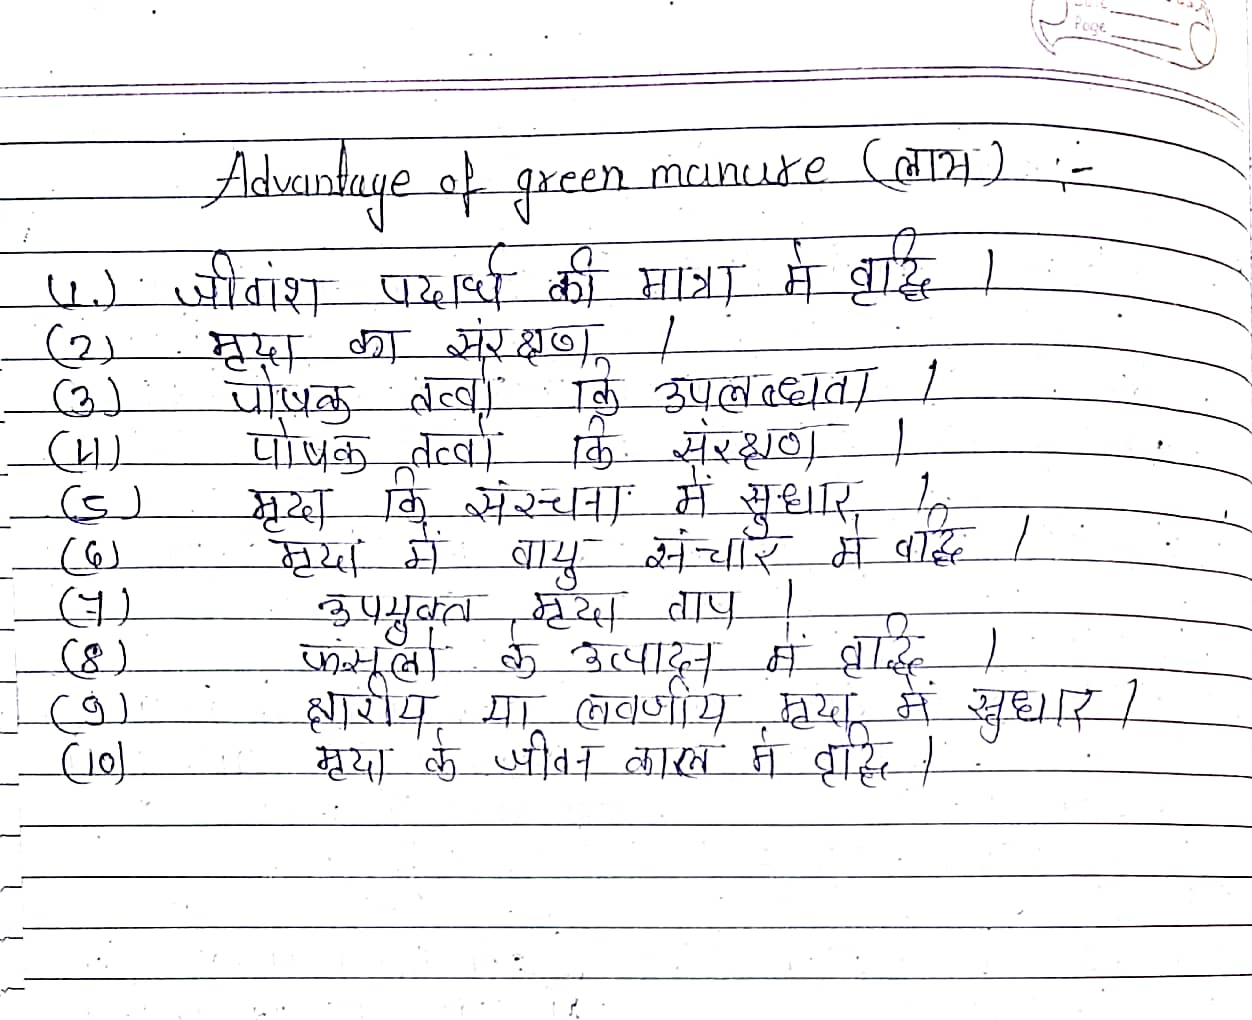 Page
Advantage of green manure (लाभ) :-
(1.) जीवांश पदार्थ की मात्रा मे वृद्धि ।
(2) मृदा का संरक्षण ।
(3) पोषक तत्वों कि उपलब्धता ।
(4) पोषक तत्वों कि संरक्षण ।
(5) मृदा कि संरचना में सुधार ।
(6) मृदा में वायु संचार मे वृद्धि ।
(7) उपयुक्त मृदा ताप ।
(8) फसलों के उत्पादन में वृद्धि ।
(9) क्षारीय या लवणीय मृदा में सुधार ।
(10) मृदा के जीवन काल में वृद्धि ।